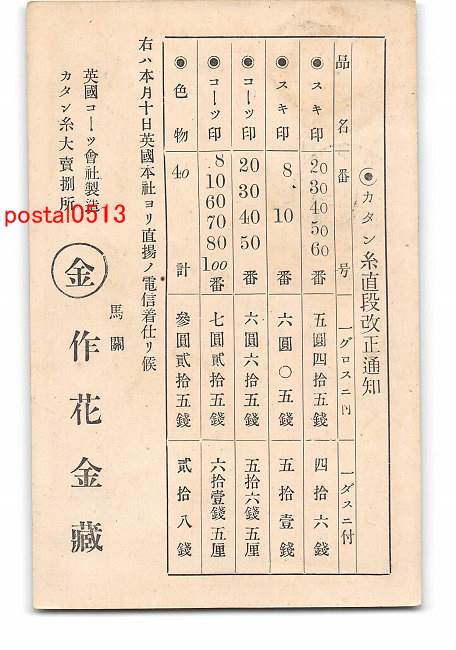 ◉カタン糸直段改正通知
品名 番号 一グロスニ付 一ダスニ付
◉スキ印 20 30 40 50 60番 五圓四拾五錢 四拾六錢
◉スキ印 8 10番 六圓〇五錢 五拾壹錢
◉コーツ印 20 30 40 50番 六圓六拾五錢 五拾六錢五厘
◉コーツ印 8 10 60 70 80 100番 七圓貳拾五錢 六拾壹錢五厘
◉色物 40 計 參圓貳拾五錢 貳拾八錢
右ハ本月十日英國本社ヨリ直揚ノ電信着仕リ候
英國コーツ會社製造
カタン糸大賣捌所
馬關
金 作花金藏
postal0513